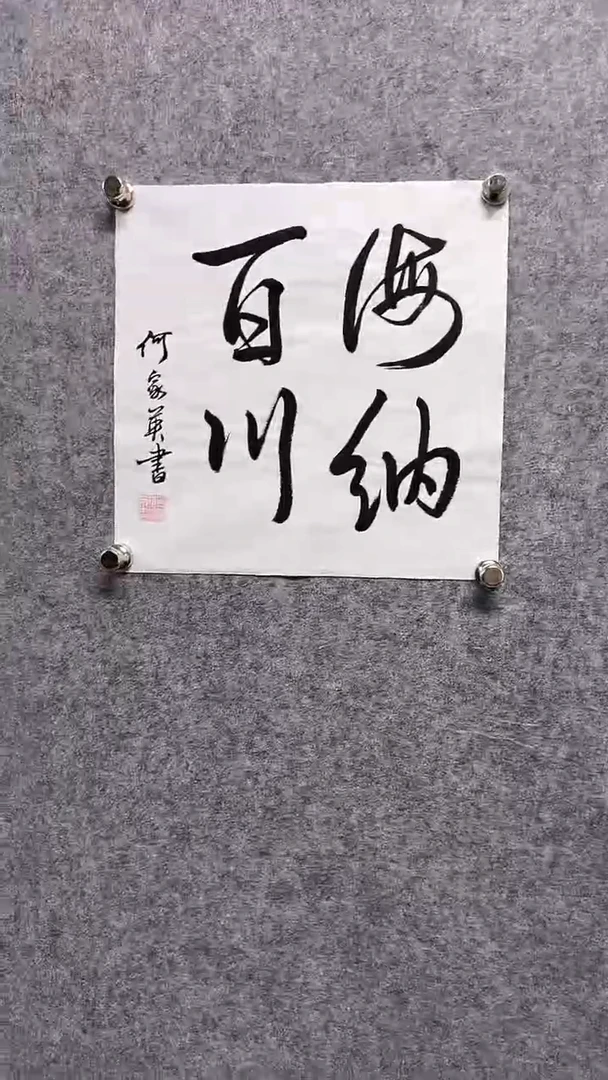 海纳
百川
何家英書